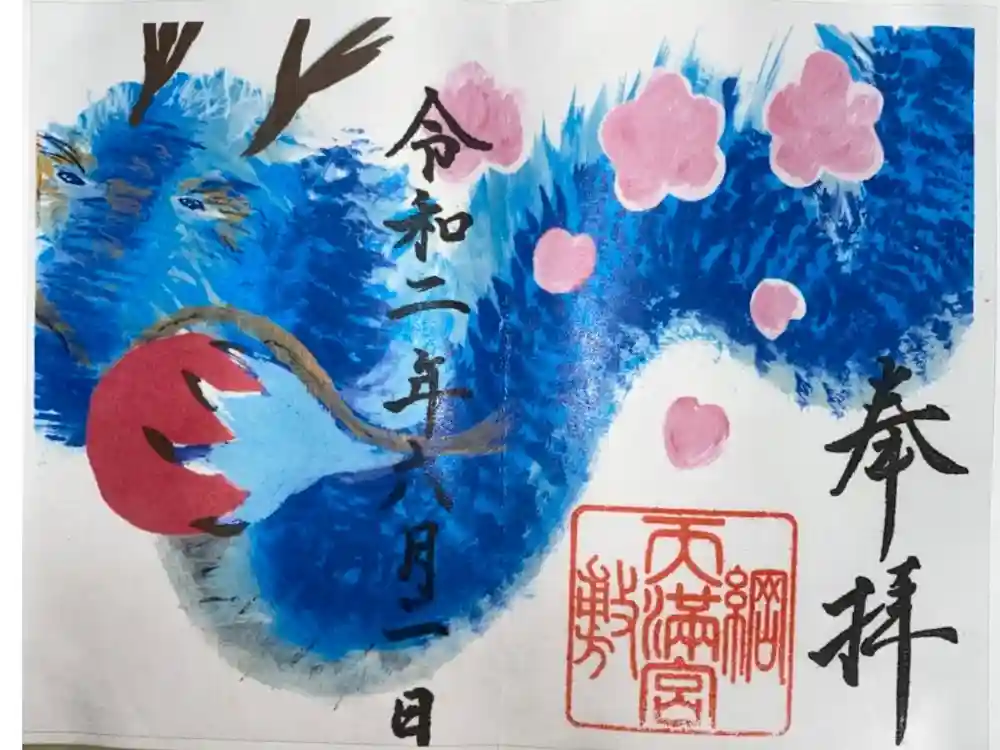 奉拝
令和二年六月一日
綱敷
天満宮